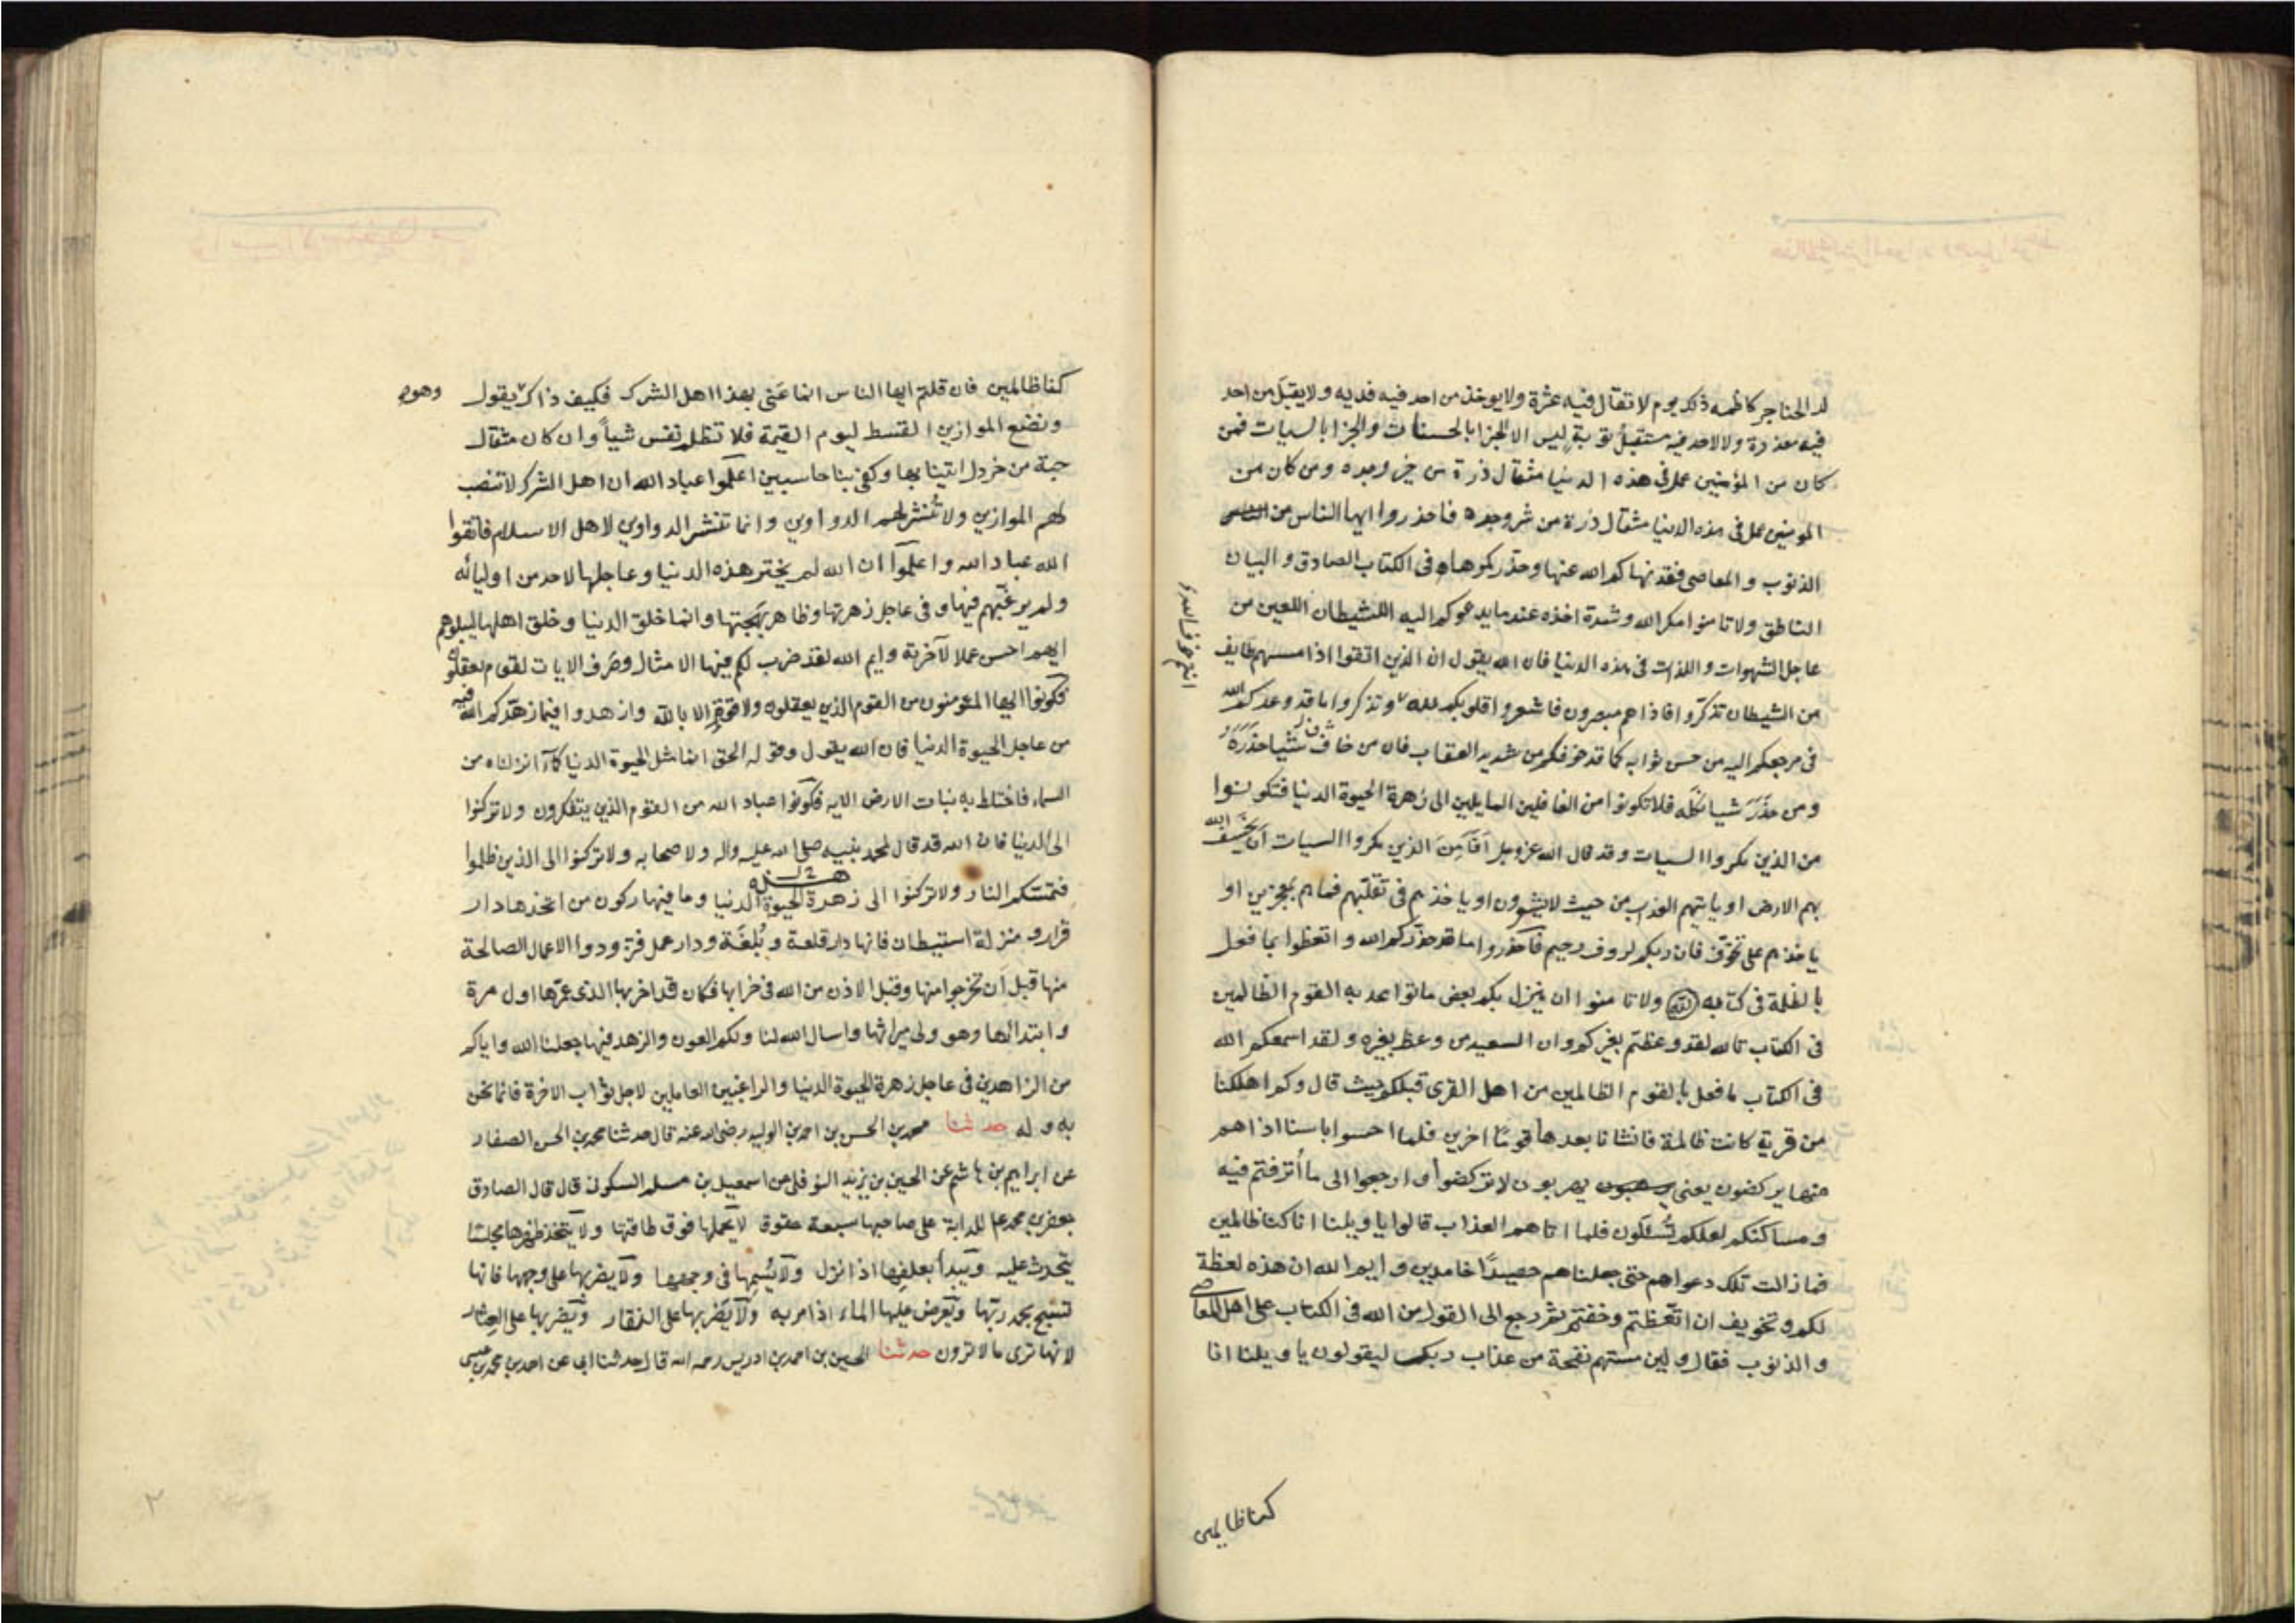 لد الحناجر كاظمه ذلك يوم لا تقال فيه عثرة ولا يوخذ من احد فيه فديه ولا يقبل من احد
فيه معذرة ولا لاحد فيه مستقبل توبة ليس الا الجزا بالحسنات والجزا بالسيات فمن
كان من المؤمنين عمل في هذه الدنيا مثقال ذرة من خير وجده ومن كان من
المومنين عمل في هذه الدنيا مثقال ذرة من شر وجده فاحذروا ايها الناس من
الذنوب والمعاصى فقد نهاكم الله عنها وحذركموها في الكتاب الصادق والبيان
الناطق ولا تامنوا مكر الله وشدة اخذه عند ما يدعوكم اليه الشيطان اللعين من
عاجل الشهوات واللذات في هذه الدنيا فان الله يقول ان الذين اتقوا اذا مسهم طايف
من الشيطان تذكروا فاذا هم مبصرون فاشعروا قلوبكم لله وتذكروا ما قد وعدكم الله
في مرجعكم اليه من حسن ثوابه كما قد خوفكم من شديد العقاب فان من خاف شيئا حذره
ومن حذر شيا نكله فلا تكونوا من الغافلين المايلين الى زهرة الحيوة الدنيا فتكونوا
من الذين مكروا السيات وقد قال الله عزوجل افامن الذين مكروا السيات ان يخسف الله
بهم الارض او ياتيهم العذاب من حيث لا يشعرون او ياخذهم في تقلبهم فماهم بمعجزين او
ياخذهم على تخوف فان ربكم لروف رحيم فاحذروا ما قد حذركم الله واتعظوا بما فعل
بالظلمة في كتابه ولا تامنوا ان ينزل بكم بعض ما تواعد به القوم الظالمين
في الكتاب تالله لقد وعظتم بغيركم وان السعيد من وعظ بغيره ولقد اسمعكم الله
في الكتاب ما فعل بالقوم الظالمين من اهل القرى قبلكم حيث قال وكم اهلكنا
من قرية كانت ظالمة فانشانا بعدها قوما اخرين فلما احسوا باسنا اذا هم
منها يركضون يعنى يهربون لا تركضوا وارجعوا الى ما أترفتم فيه
ومساكنكم لعلكم تسئلون فلما اتاهم العذاب قالوا يا ويلنا انا كنا ظالمين
فما زالت تلك دعواهم حتى جعلناهم حصيدًا خامدين وايم الله ان هذه لعظة
لكم وتخويف ان اتعظتم وخفتم ثم رجع الى القول من الله في الكتاب على اهل المعاصى
والذنوب فقال ولين مستهم نفحة من عذاب ربك ليقولون يا ويلنا انا
كنا ظالمين
كنا ظالمين فان قلتم ايها الناس انما عنى بهذا اهل الشرك فكيف ذاك وهو يقول
ونضع الموازين القسط ليوم القيمة فلا تظلم نفس شيأً وان كان مثقال
حبة من خردل اتينا بها وكفى بنا حاسبين اعلموا عباد الله ان اهل الشرك لا تنصب
لهم الموازين ولا تُنشر لهم الدواوين وانما تنشر الدواوين لاهل الاسلام فاتقوا
الله عباد الله واعلموا ان الله لم يختر هذه الدنيا وعاجلها لاحد من اوليائه
ولم يرغبهم فيها وفى عاجل زهرتها وظاهر بهجتها وانما خلق الدنيا وخلق اهلها ليبلوهم
ايهم احسن عملا لآخرته وايم الله لقد ضرب لكم فيها الامثال وصرف الايات لقوم يعقلون
فكونوا ايها المؤمنون من القوم الذين يعقلون ولا قوة الا بالله وازهدوا فيما زهدكم الله فيه
من عاجل الحيوة الدنيا فان الله يقول وقوله الحق انما مثل الحيوة الدنيا كمآ انزلناه من
السماء فاختلط به نبات الارض الايه فكونوا عباد الله من القوم الذين يتفكرون ولا تركنوا
الى الدنيا فان الله قد قال لمحمد نبيه صلى الله عليه واله ولاصحابه ولا تركنوا الى الذين ظلموا
فتمسكم النار ولا تركنوا الى زهرة هذه الحيوة الدنيا وما فيها ركون من اتخذها دار
قرار ومنزلة استيطان فانها دار قلعة وبُلغَة ودار عمل فتزودوا الاعمال الصالحة
منها قبل أن تخرجوا منها وقبل الاذن من الله في خرابها فكان قد اخربها الذى عمرها اول مرة
وابتداها وهو ولى ميراثها واسال الله لنا ولكم العون والزهد فيها جعلنا الله واياكم
من الزاهدين في عاجل زهرة الحيوة الدنيا والراغبين العاملين لاجل ثواب الاخرة فانما نحن
به وله حدثنا محمد بن الحسن بن احمد بن الوليد رضى الله عنه قال حدثنا محمد بن الحسن الصفار
عن ابراهيم بن هاشم عن الحسين بن يزيد النوفلى عن اسمعيل بن مسلم السكونى قال قال الصادق
جعفر بن محمد ع للدابة على صاحبها سبعة حقوق لا يحملها فوق طاقتها ولا يتخذ ظهرها مجلسًا
يتحدث عليه ويبدأ بعلفها اذا نزل ولا يسمها في وجهها ولا يضربها على وجهها فانها
تسبح بحمد ربها ويعرض عليها الماء اذا مر به ولا يضربها على النفار ويضربها على العثار
لانها ترى ما لا ترون حدثنا الحسين بن احمد بن ادريس رحمه الله قال حدثنا ابى عن احمد بن محمد بن عيسى